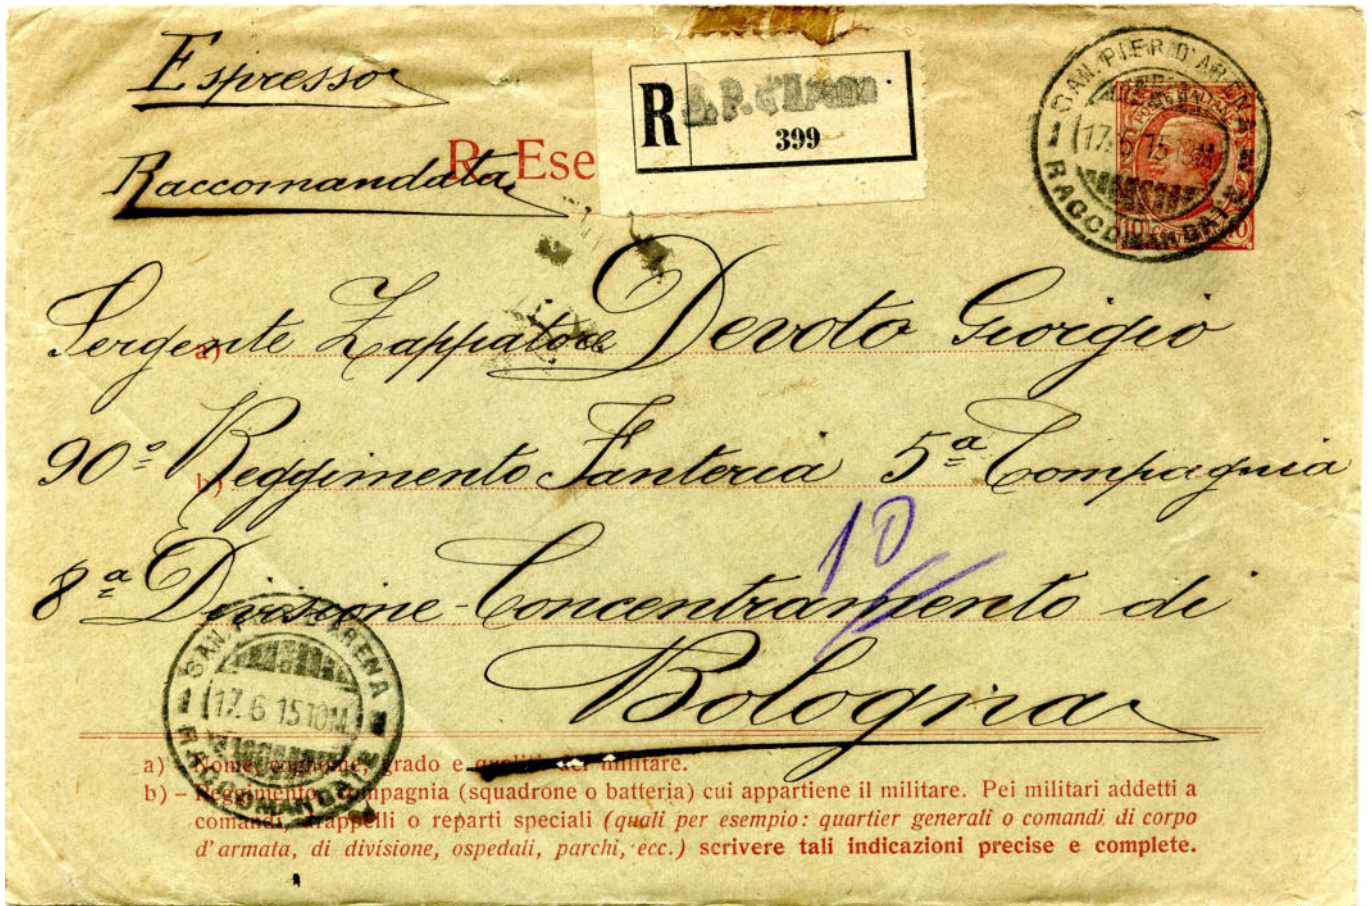 Espresso
Raccomandata
R. Ese
R S. P. d'Arena
399
SAN. PIER D'ARENA
POSTE ITALIANE
17. 6 15 10M
RACCOMANDATE
10 10
Sergente Zappatore Devoto Giorgio
a)
90º Reggimento Fanteria 5ª Compagnia
b)
10
8ª Divisione - Concentramento di
Bologna
SAN. PIER D'ARENA
17. 6 15 10M
RACCOMANDATE
a) - Nome, cognome, grado e qualità del militare.
b) - Reggimento, compagnia (squadrone o batteria) cui appartiene il militare. Pei militari addetti a
comandi, drappelli o reparti speciali (quali per esempio: quartier generali o comandi di corpo
d'armata, di divisione, ospedali, parchi, ecc.) scrivere tali indicazioni precise e complete.